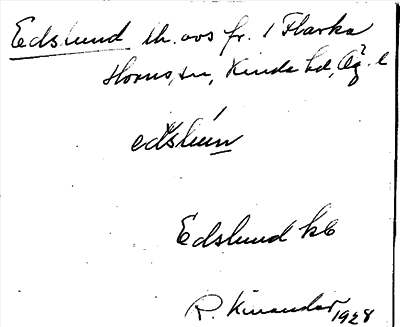 Edslund th. avs fr. 1 Flarka
Horns sn, Kinda hd, Ög. l
edslún
Edslund kb
R. Kinander 1928